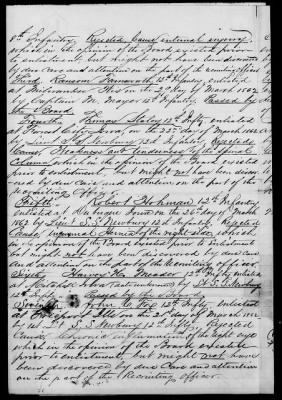 8th Infantry, Rejected Cause internal injury
which in the opinion of the Board existed prior
to enlistment, but might not have been discovered
by due care and attention on the part of the recruiting officer
Third, Ransom 12th Infantry, enlisted
at Milwaukee Wis on the 29 day of March 1862
by Captain M. Mayer 12th Infantry, Passed by
the Board
Fourth Thomas Staley 12th Infty, enlisted
at Forest City, Iowa, on the 22d day of March 1862
by Newbury 12d Infantry, Rejected
Cause, tenderness of the Spinal
Column which in the opinion of the Board existed
prior to enlistment, but might not have been discov-
ered by due care and attention on the part of the
recruiting officer.
Fifth, Robert Hohman 12th Infantry
enlisted at Dubuque Iowa on the 26 day of March
1862 by Lieut S. S. Newbury 12d Infantry, Rejected
Cause, Inguinal Hernia of the right side which
in the opinion of the Board existed prior to enlistment
but might not have been discovered by due care and
attention on the part of the Recruiting officer
Sixth Harvey H. Meador 12th Infty enlisted
at by Lt S. S. Newbury
12th Passed by the Board
Seventh, John C. 12th Infty, enlisted
at Freeport Ills on the 28 day of March 1862
by 1st Lieut S. S. Newbury 12th Infty, Rejected
Cause, Chronic inflammation of the right eye
which in the opinion of the Board existed
prior to enlistment, but might not have
been discovered by due care and attention
on the part of the Recruiting officer.